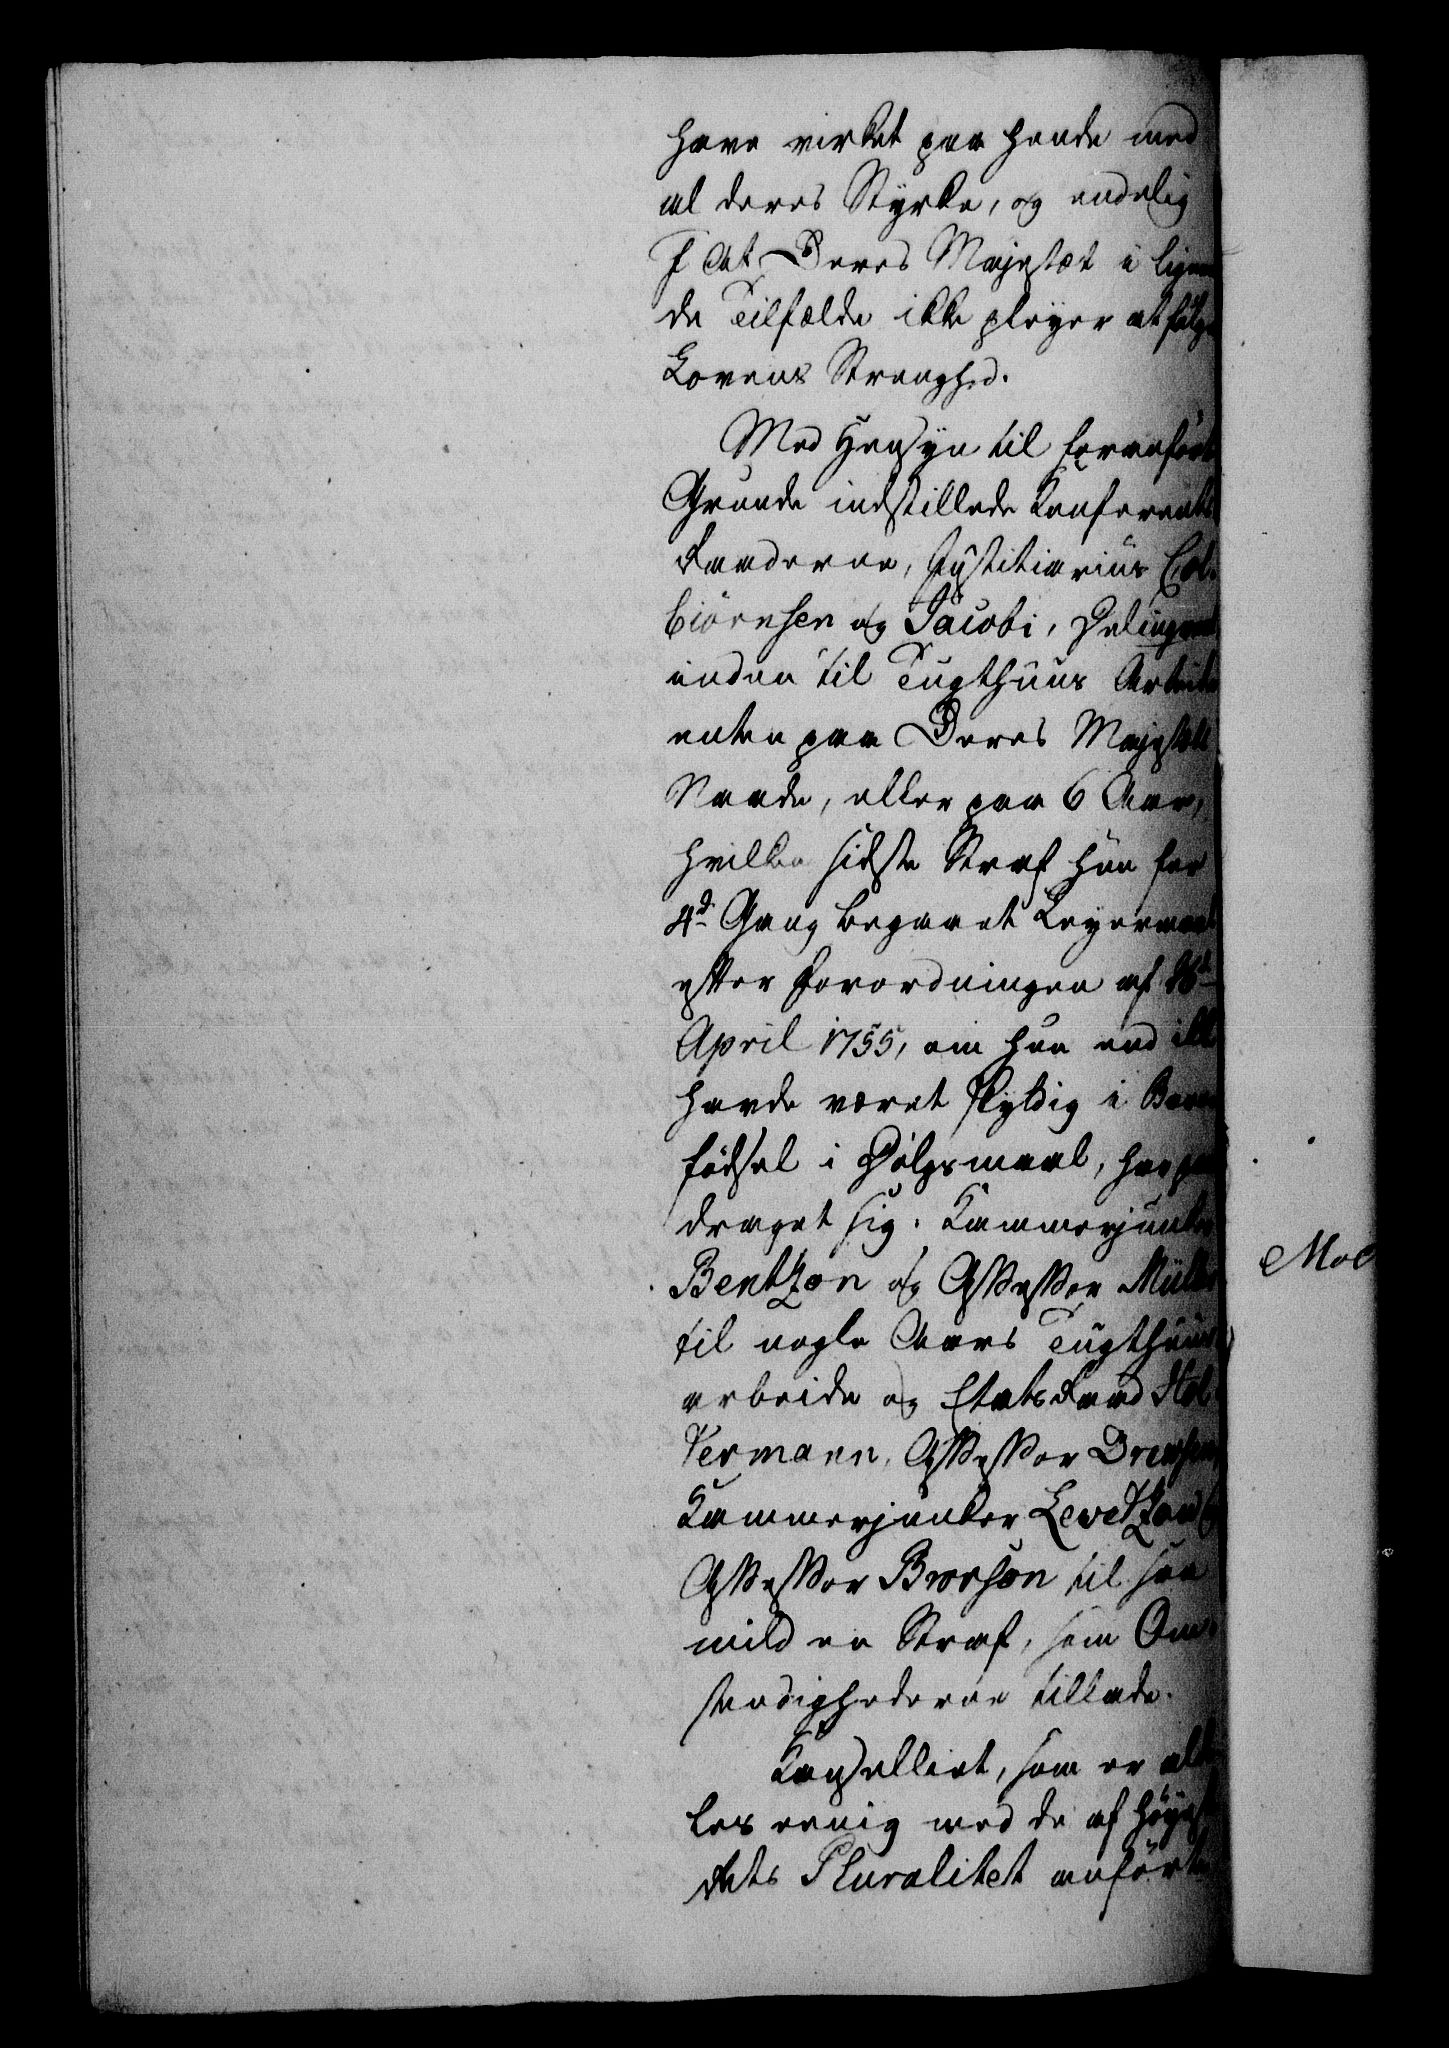 have virket paa hende med
al deres Styrke, og endelig
f at Deres Majestæt i lignen
de Tilfælde ikke pleyer at følge
Lovens Strenghed.
Med Hensyn til foranførte
Grunde indstillede Conferents
Raaderne, Justitiarius Col-
biörnsen og Jacobi, Delinqvent
inden til Tugthuus Arbeide
enten paa Deres Majestæts
Naade, eller paa 6 Aar,
hvilken sidste Straf hun for
4de Gang begaaet Leyermaal
efter Forordningen af
April 1755, om hun end ikke
havde været skyldig i Barne
fødsel i Dølgsmaal, har paa
draget sig. Kammerjunker
Bentzon og Assessor Müller
til nogle Aars Tugthuus
arbeide og EtatsRaad Hol-
Termann, Assessor Drewsen,
Kammerjunker Levetzow og
Assessor Brorson til saa
mild en Straf, som Om-
stændighederne tillade.
Cancelliet, som er alde
les eenig med de af Høyeste
Rets Pluralitet anførte